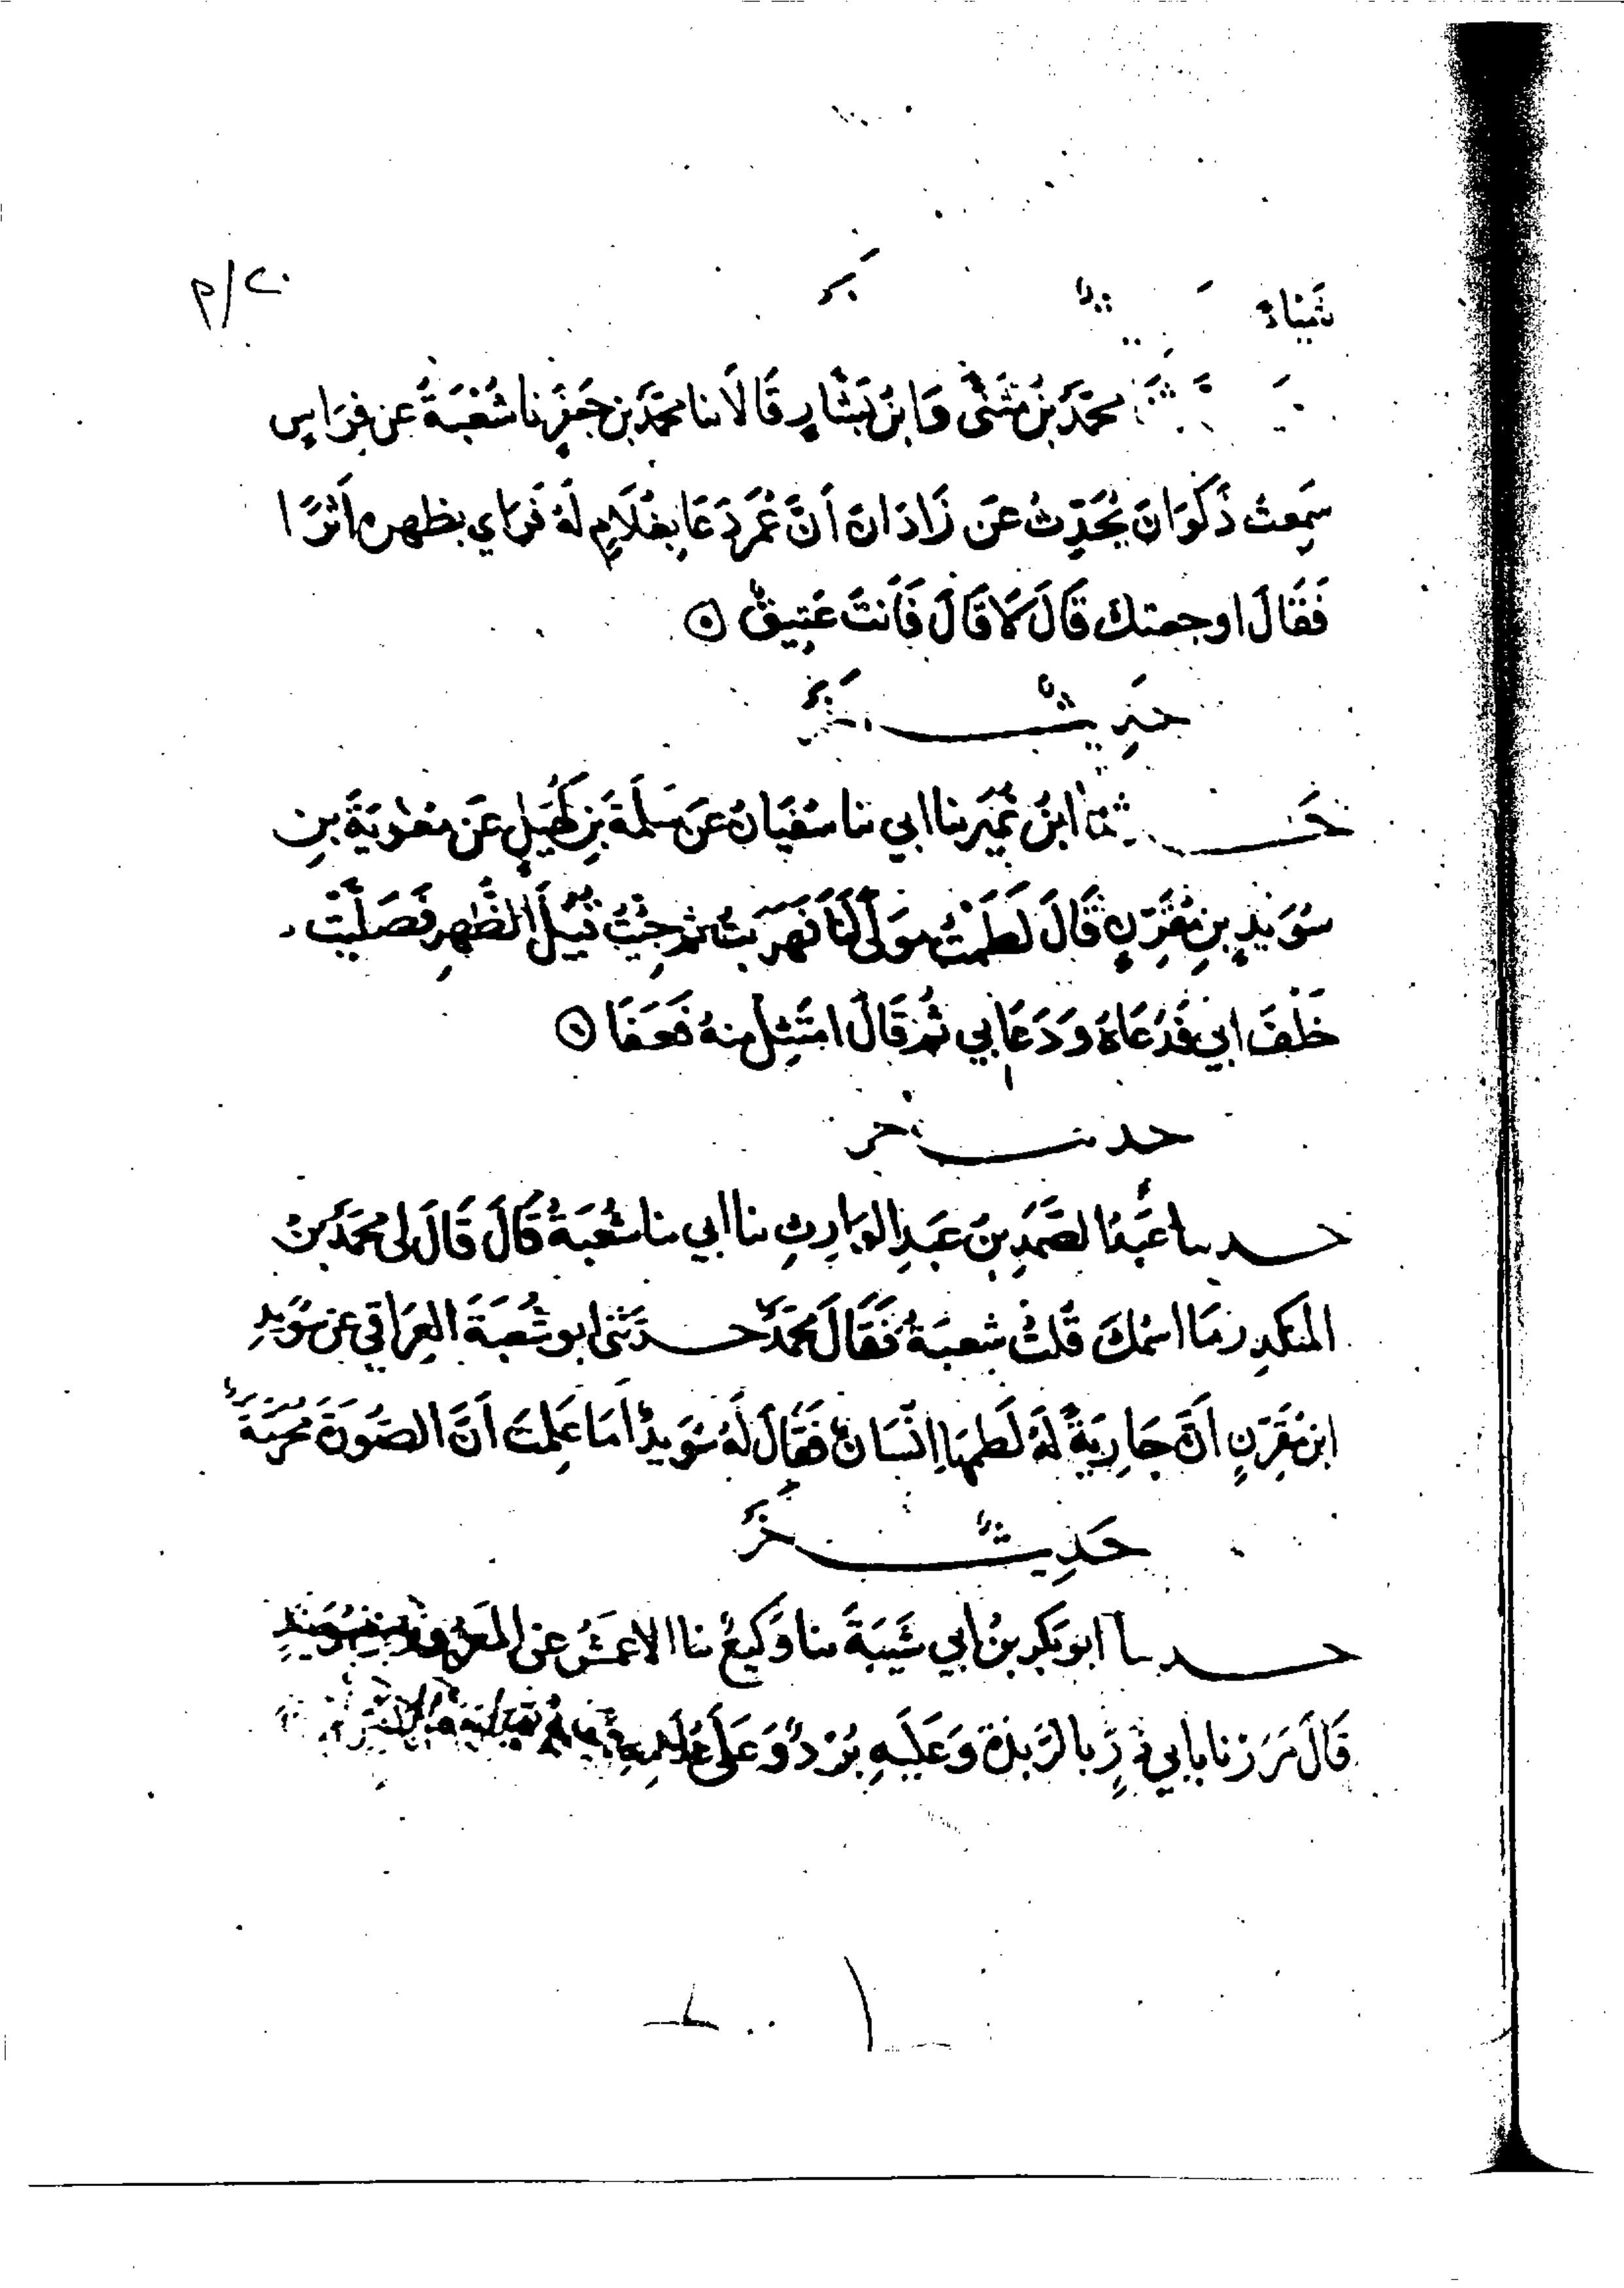 شَيْبَانُ
محمَّدُ بنُ مُثَنَّى وَابنُ بَشَّارٍ قَالَا نا محمَّدُ بن جَعفَرٍ نا شُعْبَةُ عن فِرَاسٍ
سَمِعتُ ذَكْوَانَ يُحَدِّثُ عَن زَاذَانَ أنَّ عُمَرَ دَعَا بِغُلَامٍ لَهُ فَرَاي بظهره أثَرًا
فَقَالَ اوجعتك قَالَ لَا قَالَ فَأنتَ عَتِيقٌ
حَدِيثٌ آخَرُ
حَدَّثَنَا ابنُ نُمَيرٍ نا ابي نا سُفيَانُ عَن سَلَمَةَ بنِ كُهَيلٍ عَن مُعٰوِيَةَ بنِ
سُوَيدِ بنِ مُقَرِّنٍ قَالَ لَطَمْتُ مَولًى لَنَا فَهَرَبتُ ثم جِئْتُ قُبَيْلَ الظُّهرِ فَصَلَّيْت
خَلْفَ ابي فَدَعَاهُ وَدَعَانِي ثُم قَالَ امْتَثِل مِنهُ فَعَفَا
حديث آخر
حدثنا عَبدُ الصَّمَدِ بنُ عَبدِ الوَارِثِ نا ابي نا شُعبَةُ قَالَ قَالَ لي محمَّدُ بنُ
المنكدِر مَا اسْمُكَ قُلتُ شعبَةُ فَقَالَ محمَّدٌ حدثَنى ابو شُعبَةَ العِرَاقي عن سُوَيدِ
ابن مُقَرِّنٍ أنَّ جَارِيَةً لَهُ لَطَمَهَا إنْسَانٌ فَقَالَ لَهُ سُوَيدٌ أمَا عَلِمتَ أنَّ الصُّورَةَ مُحَرَّمَةٌ
حَدِيثٌ آخَرُ
حدثنا ابو بَكرِ بنُ أبي شَيبَةَ نا وَكِيعٌ نا الاعمَشُ عن المَعرُورِ بنِ سُوَيدٍ
قَالَ مَرَرنا بابي ذَرٍّ بالرَّبَذَةِ وَعَلَيهِ بُرْدٌ وَعَلَى غُلَامِهِ